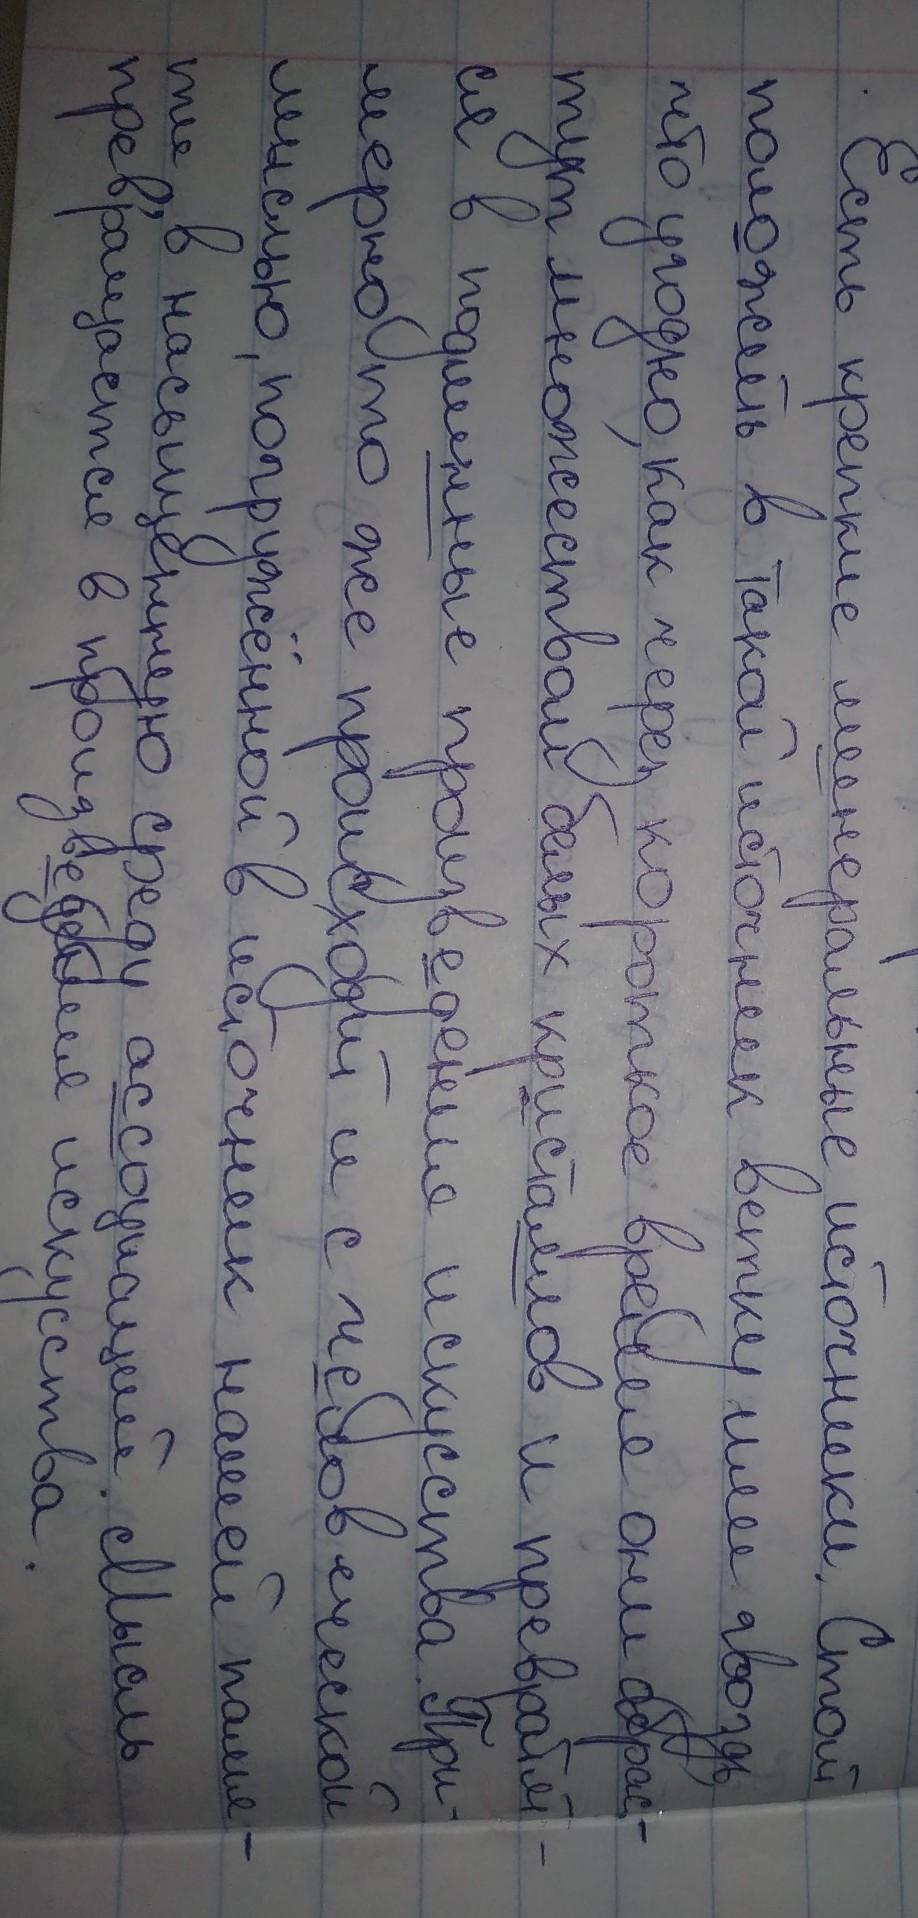 Есть крепкие минеральные источники. Стой
положить в такой источник ветку или гвоздь,
что угодно, как через короткое время они обрас-
тут множеством белых кристаллов и превратят-
ся в подлинные произведения искусства. При-
мерно то же происходит и с человеческой
мыслью, погружённой в источник нашей памя-
ти, в насыщенную среду ассоциаций. Мысль
превращается в произведение искусства.